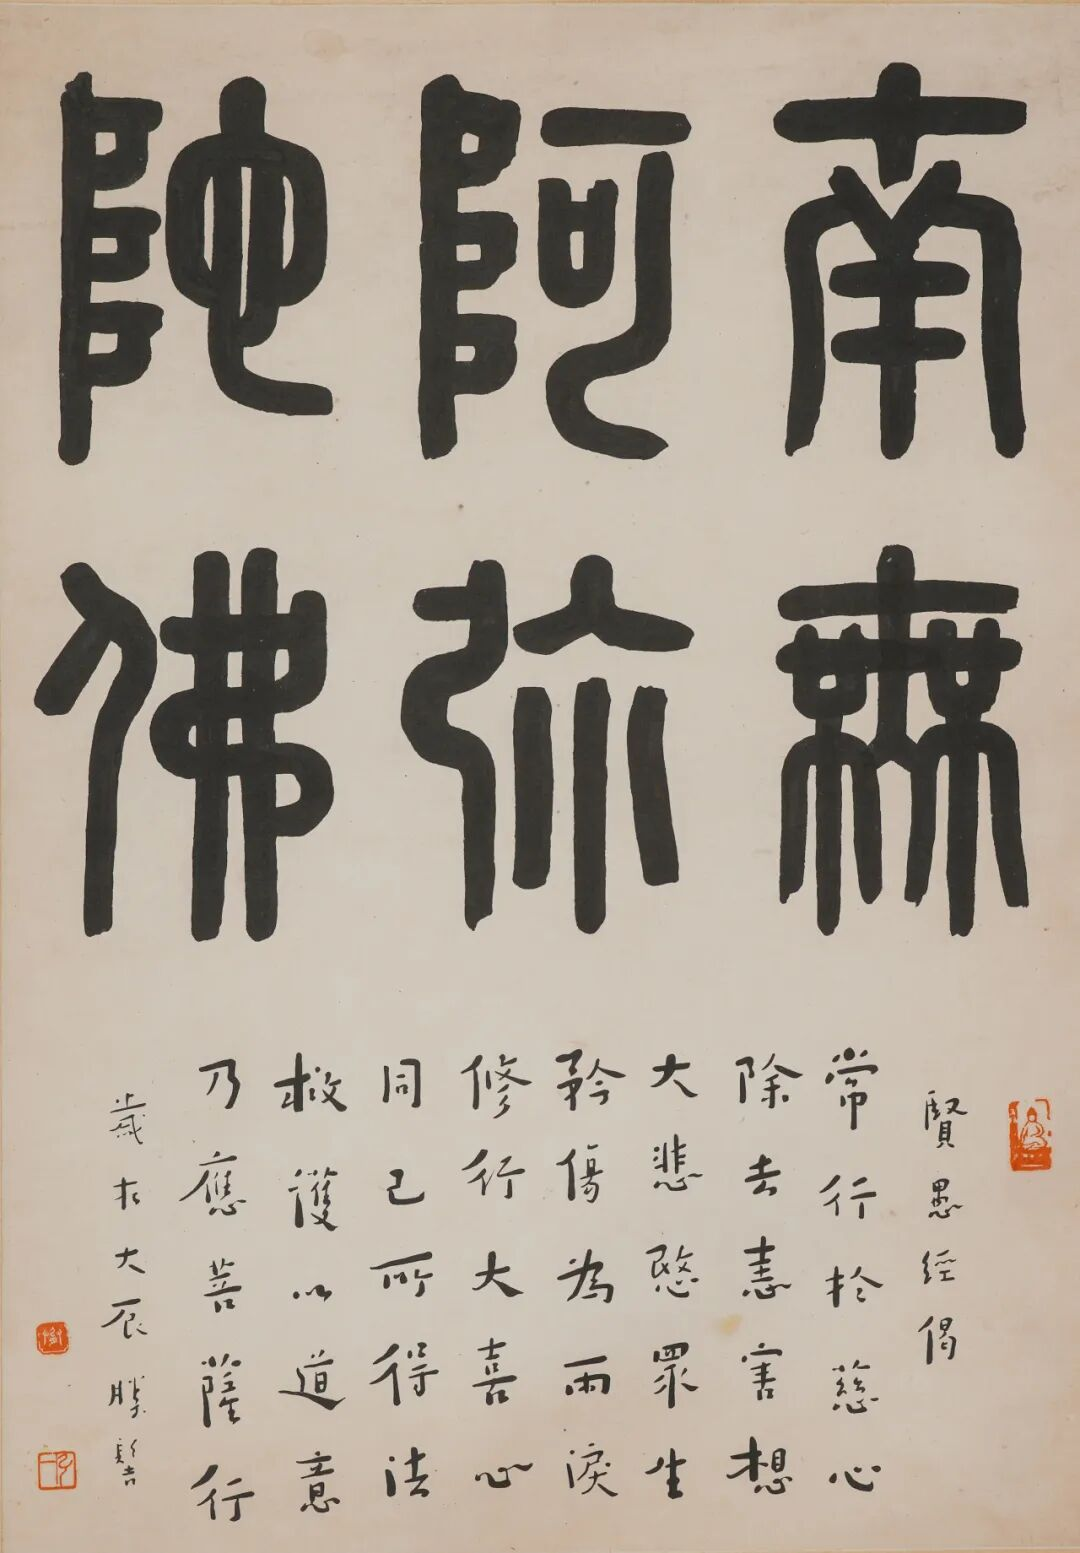 南無
阿弥
陀佛
賢愚經偈
常行於慈心
除去恚害想
大悲愍眾生
矜傷為雨淚
修行大喜心
同己所得法
救護以道意
乃應菩薩行
歲在大辰勝髻